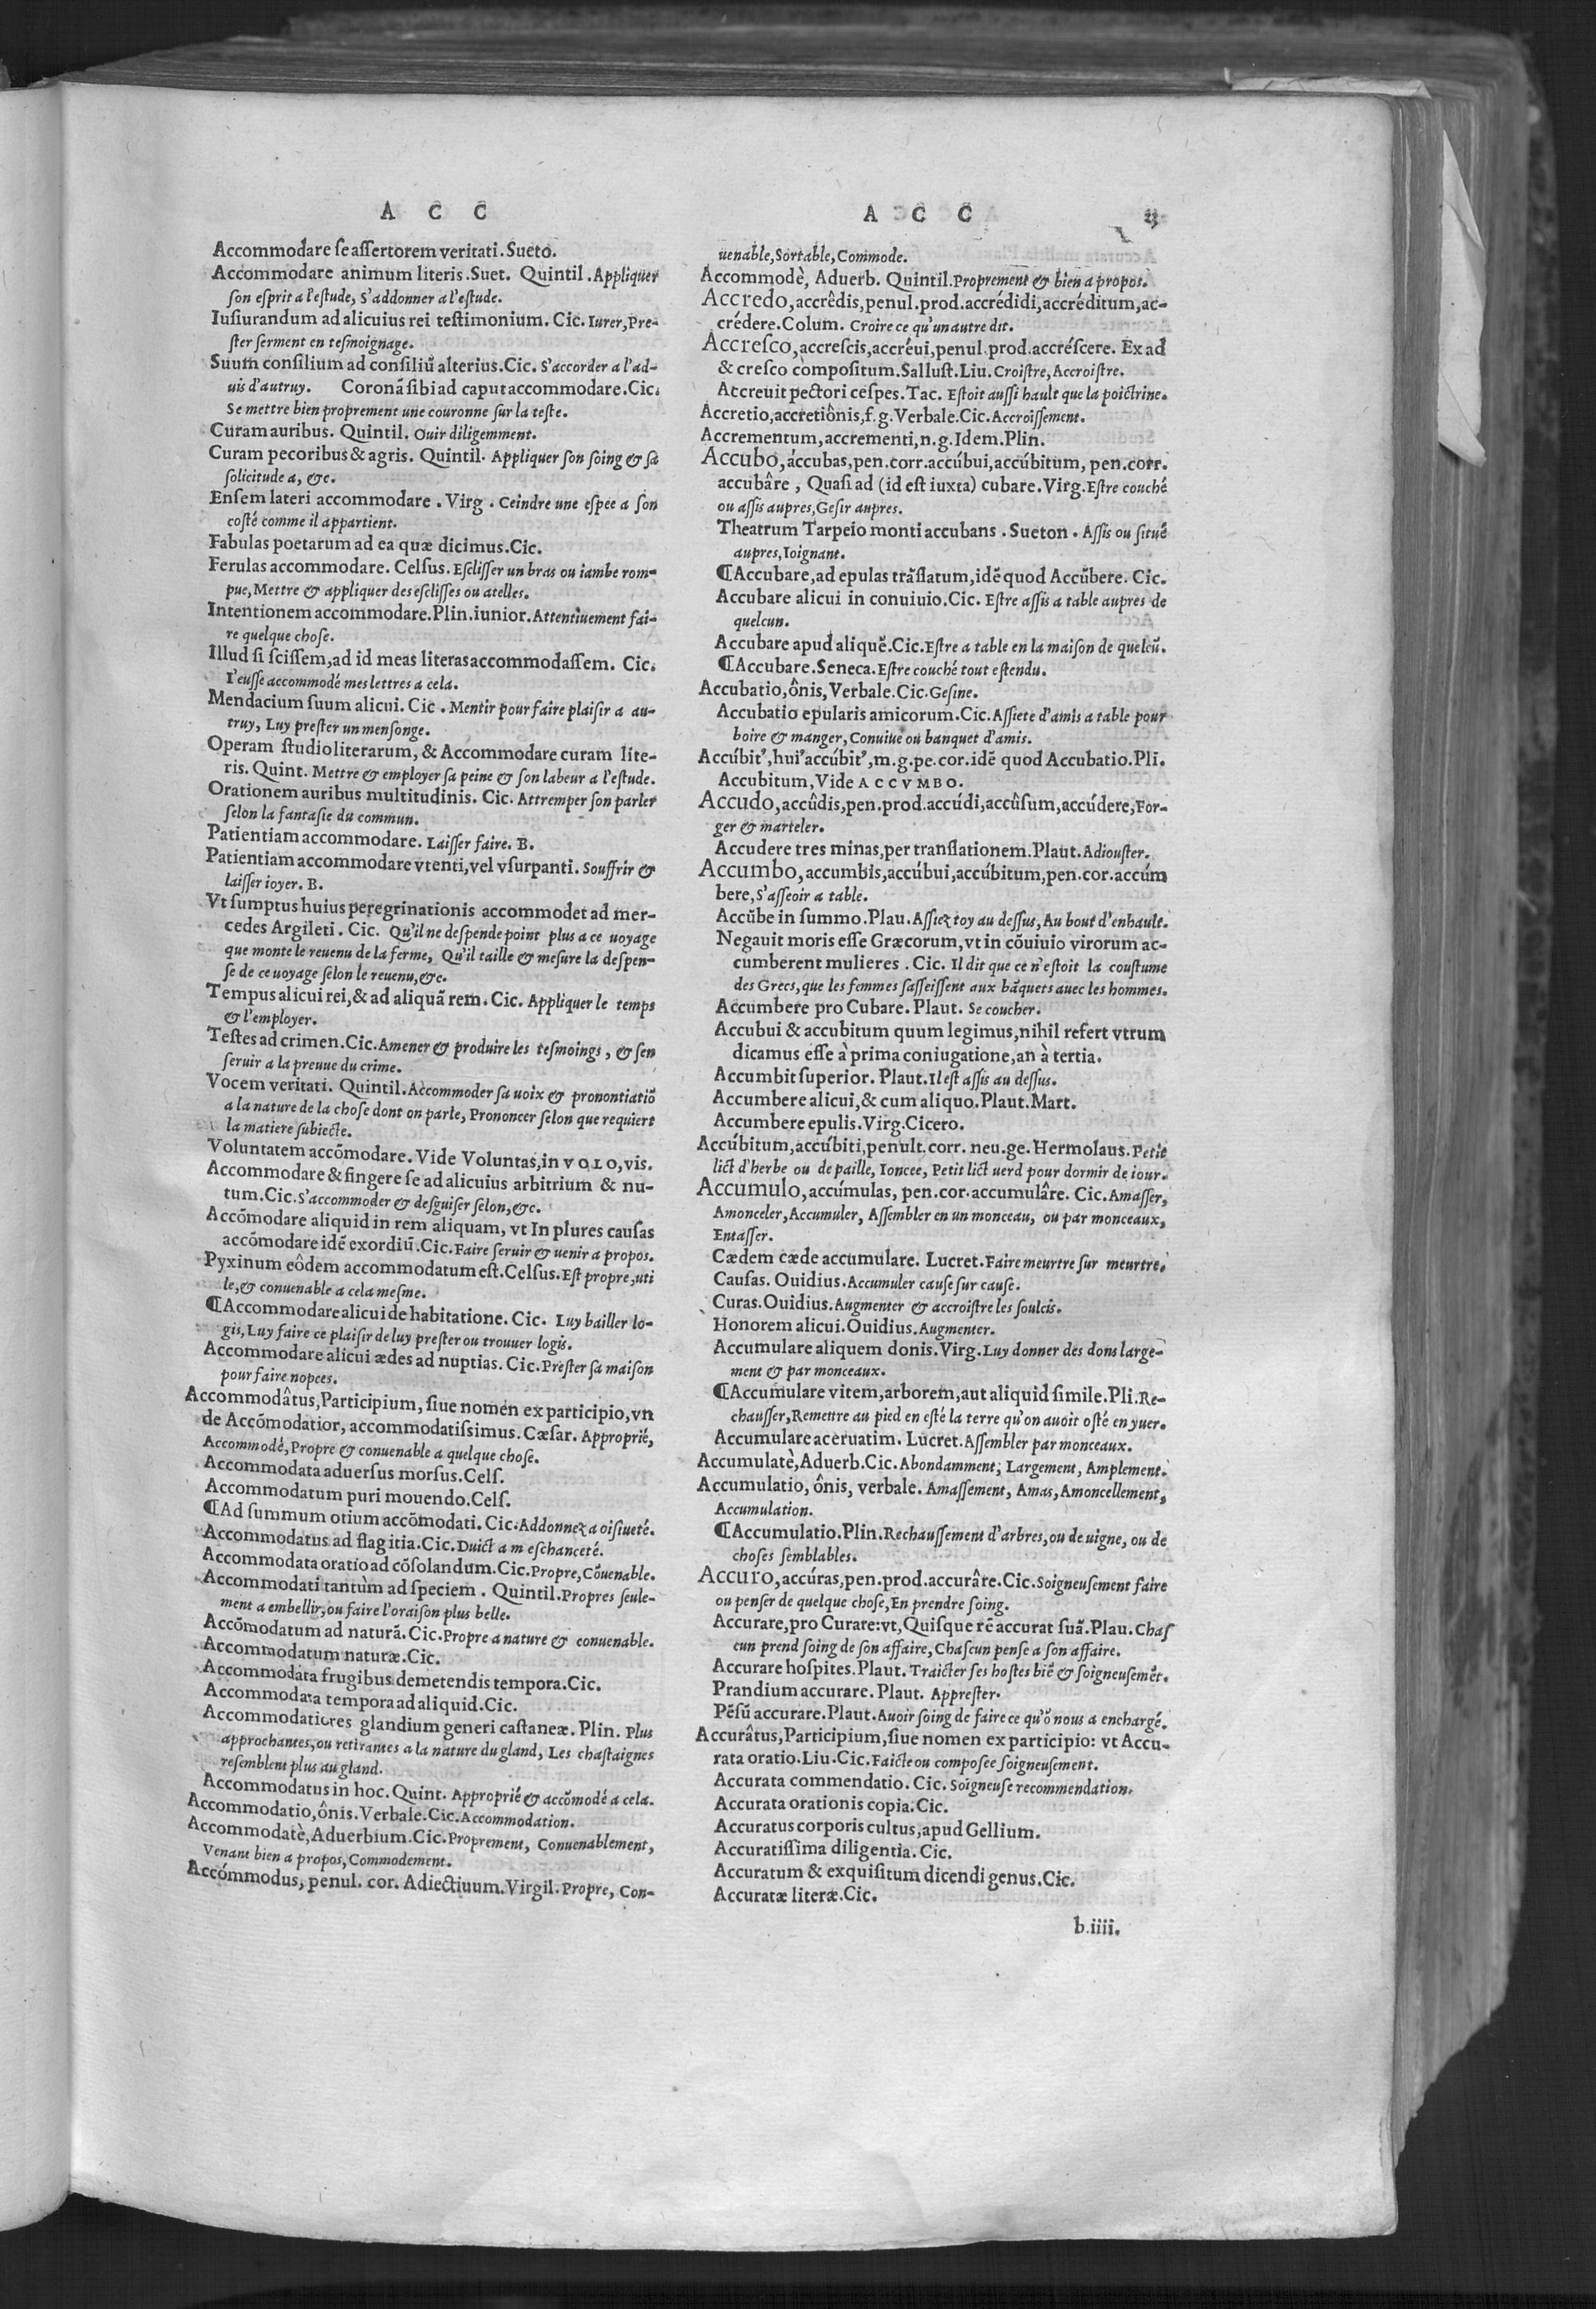 A C C
Accommodare ſe aſſertorem veritati. Sueto.
Accommodare animum literis. Suet. Quintil. Appliquer
ſon eſprit a l'eſtude, S'addonner a l'eſtude.
Iuſiurandum ad alicuius rei teſtimonium. Cic. Iurer, Pre-
ſter ſerment en teſmoignage.
Suum conſilium ad conſiliũ alterius. Cic. S'accorder a l'ad-
uis d'autruy. Coronã ſibi ad caput accommodare. Cic.
Se mettre bien proprement une couronne ſur la teſte.
Curam auribus. Quintil. Ouir diligemment.
Curam pecoribus & agris. Quintil. Appliquer ſon ſoing & ſa
ſolicitude a, &c.
Enſem lateri accommodare. Virg. Ceindre une eſpee a ſon
coſté comme il appartient.
Fabulas poetarum ad ea quæ dicimus. Cic.
Ferulas accommodare. Celſus. Eſcliſſer un bras ou iambe rom-
pue, Mettre & appliquer des eſcliſſes ou atelles.
Intentionem accommodare. Plin. iunior. Attentiuement fai-
re quelque choſe.
Illud ſi ſciſſem, ad id meas literas accommodaſſem. Cic.
I'euſſe accommodé mes lettres a cela.
Mendacium ſuum alicui. Cic. Mentir pour faire plaiſir a au-
truy, Luy preſter un menſonge.
Operam ſtudio literarum, & Accommodare curam lite-
ris. Quint. Mettre & employer ſa peine & ſon labeur a l'eſtude.
Orationem auribus multitudinis. Cic. Attremper ſon parler
ſelon la fantaſie du commun.
Patientiam accommodare. Laiſſer faire. B.
Patientiam accommodare vtenti, vel vſurpanti. Souffrir &
laiſſer ioyer. B.
Vt ſumptus huius peregrinationis accommodet ad mer-
cedes Argileti. Cic. Qu'il ne deſpende point plus a ce uoyage
que monte le reuenu de la ferme, Qu'il taille & meſure la deſpen-
ſe de ce uoyage ſelon le reuenu, &c.
Tempus alicui rei, & ad aliquã rem. Cic. Appliquer le temps
& l'employer.
Teſtes ad crimen. Cic. Amener & produire les teſmoings, & ſen
ſeruir a la preuue du crime.
Vocem veritati. Quintil. Accommoder ſa uoix & pronontiatiõ
a la nature de la choſe dont on parle, Prononcer ſelon que requiert
la matiere ſubiecte.
Voluntatem accõmodare. Vide Voluntas, in VOLO, vis.
Accommodare & fingere ſe ad alicuius arbitrium & nu-
tum. Cic. S'accommoder & deſguiſer ſelon, &c.
Accõmodare aliquid in rem aliquam, vt In plures cauſas
accõmodare idẽ exordiũ. Cic. Faire ſeruir & uenir a propos.
Pyxinum eôdem accommodatum eſt. Celſus. Eſt propre, uti
le, & conuenable a cela meſme.
¶Accommodare alicui de habitatione. Cic. Luy bailler lo-
gis, Luy faire ce plaiſir de luy preſter ou trouuer logis.
Accommodare alicui ædes ad nuptias. Cic. Preſter ſa maiſon
pour faire nopces.
Accommodâtus, Participium, ſiue nomen ex participio, vn
de Accõmodatior, accommodatiſsimus. Cæſar. Approprié,
Accommodé, Propre & conuenable a quelque choſe.
Accommodata aduerſus morſus. Celſ.
Accommodatum puri mouendo. Celſ.
¶Ad ſummum otium accõmodati. Cic. Addonnez a oiſiueté.
Accommodatus ad flagitia. Cic. Duict a meſchanceté.
Accommodata oratio ad cõſolandum. Cic. Propre, Cõuenable.
Accommodati tantùm ad ſpeciem. Quintil. Propres ſeule-
ment a embellir, ou faire l'oraiſon plus belle.
Accõmodatum ad naturã. Cic. Propre a nature & conuenable.
Accommodatum naturæ. Cic.
Accommodata frugibus demetendis tempora. Cic.
Accommodata tempora ad aliquid. Cic.
Accommodatiores glandium generi caſtaneæ. Plin. Plus
approchantes, ou retirantes a la nature du gland, Les chaſtaignes
reſemblent plus au gland.
Accommodatus in hoc. Quint. Approprié & accõmodé a cela.
Accommodatio, ônis. Verbale. Cic. Accommodation.
Accommodatè, Aduerbium. Cic. Proprement, Conuenablement,
Venant bien a propos, Commodement.
Accómmodus, penul. cor. Adiectiuum. Virgil. Propre, Con-
A C C
uenable, Sortable, Commode.
Accommodè, Aduerb. Quintil. Proprement & bien a propos.
Accredo, accrêdis, penul. prod. accrédidi, accréditum, ac-
crédere. Colum. Croire ce qu'un autre dit.
Accreſco, accreſcis, accréui, penul. prod. accréſcere. Ex ad
& creſco compoſitum. Salluſt. Liu. Croiſtre, Accroiſtre.
Accreuit pectori ceſpes. Tac. Eſtoit auſſi hault que la poictrine.
Accretio, accretiônis, f. g. Verbale. Cic. Accroiſſement.
Accrementum, accrementi, n. g. Idem. Plin.
Accubo, áccubas, pen. corr. accúbui, accúbitum, pen. corr.
accubâre, Quaſi ad (id eſt iuxta) cubare. Virg. Eſtre couché
ou aſſis aupres, Geſir aupres.
Theatrum Tarpeio monti accubans. Sueton. Aſſis ou ſitué
aupres, Ioignant.
¶Accubare, ad epulas trãſlatum, idẽ quod Accũbere. Cic.
Accubare alicui in conuiuio. Cic. Eſtre aſſis a table aupres de
quelcun.
Accubare apud aliquẽ. Cic. Eſtre a table en la maiſon de quelcũ.
¶Accubare. Seneca. Eſtre couché tout eſtendu.
Accubatio, ônis, Verbale. Cic. Geſine.
Accubatio epularis amicorum. Cic. Aſſiete d'amis a table pour
boire & manger, Conuiue ou banquet d'amis.
Accúbitꝰ, huiꝰ accúbitꝰ, m. g. pe. cor. idẽ quod Accubatio. Pli.
Accubitum, Vide ACCVMBO.
Accudo, accûdis, pen. prod. accúdi, accûſum, accúdere, For-
ger & marteler.
Accudere tres minas, per tranſlationem. Plaut. Adiouſter.
Accumbo, accumbis, accúbui, accúbitum, pen. cor. accúm
bere, S'aſſeoir a table.
Accũbe in ſummo. Plau. Aſſiez toy au deſſus, Au bout d'enhault.
Negauit moris eſſe Græcorum, vt in cõuiuio virorum ac-
cumberent mulieres. Cic. Il dit que ce n'eſtoit la couſtume
des Grecs, que les femmes ſaſſeiſſent aux bãquets auec les hommes.
Accumbere pro Cubare. Plaut. Se coucher.
Accubui & accubitum quum legimus, nihil refert vtrum
dicamus eſſe à prima coniugatione, an à tertia.
Accumbit ſuperior. Plaut. Il eſt aſſis au deſſus.
Accumbere alicui, & cum aliquo. Plaut. Mart.
Accumbere epulis. Virg. Cicero.
Accúbitum, accúbiti, penult. corr. neu. ge. Hermolaus. Petit
lict d'herbe ou de paille, Ioncee, Petit lict uerd pour dormir de iour.
Accumulo, accúmulas, pen. cor. accumulâre. Cic. Amaſſer,
Amonceler, Accumuler, Aſſembler en un monceau, ou par monceaux,
Entaſſer.
Cædem cæde accumulare. Lucret. Faire meurtre ſur meurtre.
Cauſas. Ouidius. Accumuler cauſe ſur cauſe.
Curas. Ouidius. Augmenter & accroiſtre les ſoulcis.
Honorem alicui. Ouidius. Augmenter.
Accumulare aliquem donis. Virg. Luy donner des dons large-
ment & par monceaux.
¶Accumulare vitem, arborem, aut aliquid ſimile. Pli. Re-
chauſſer, Remettre au pied en eſté la terre qu'on auoit oſté en yuer.
Accumulare aceruatim. Lucret. Aſſembler par monceaux.
Accumulatè, Aduerb. Cic. Abondamment, Largement, Amplement.
Accumulatio, ônis, verbale. Amaſſement, Amas, Amoncellement,
Accumulation.
¶Accumulatio. Plin. Rechauſſement d'arbres, ou de uigne, ou de
choſes ſemblables.
Accuro, accúras, pen. prod. accurâre. Cic. Soigneuſement faire
ou penſer de quelque choſe, En prendre ſoing.
Accurare, pro Curare: vt, Quiſque rẽ accurat ſuã. Plau. Chaſ
cun prend ſoing de ſon affaire, Chaſcun penſe a ſon affaire.
Accurare hoſpites. Plaut. Traicter ſes hoſtes biẽ & ſoigneuſemẽt.
Prandium accurare. Plaut. Appreſter.
Pẽſũ accurare. Plaut. Auoir ſoing de faire ce qu'õ nous a enchargé.
Accurâtus, Participium, ſiue nomen ex participio: vt Accu-
rata oratio. Liu. Cic. Faicte ou compoſee ſoigneuſement.
Accurata commendatio. Cic. Soigneuſe recommendation.
Accurata orationis copia. Cic.
Accuratus corporis cultus, apud Gellium.
Accuratiſſima diligentia. Cic.
Accuratum & exquiſitum dicendi genus. Cic.
Accuratæ literæ. Cic.
b.iiii.